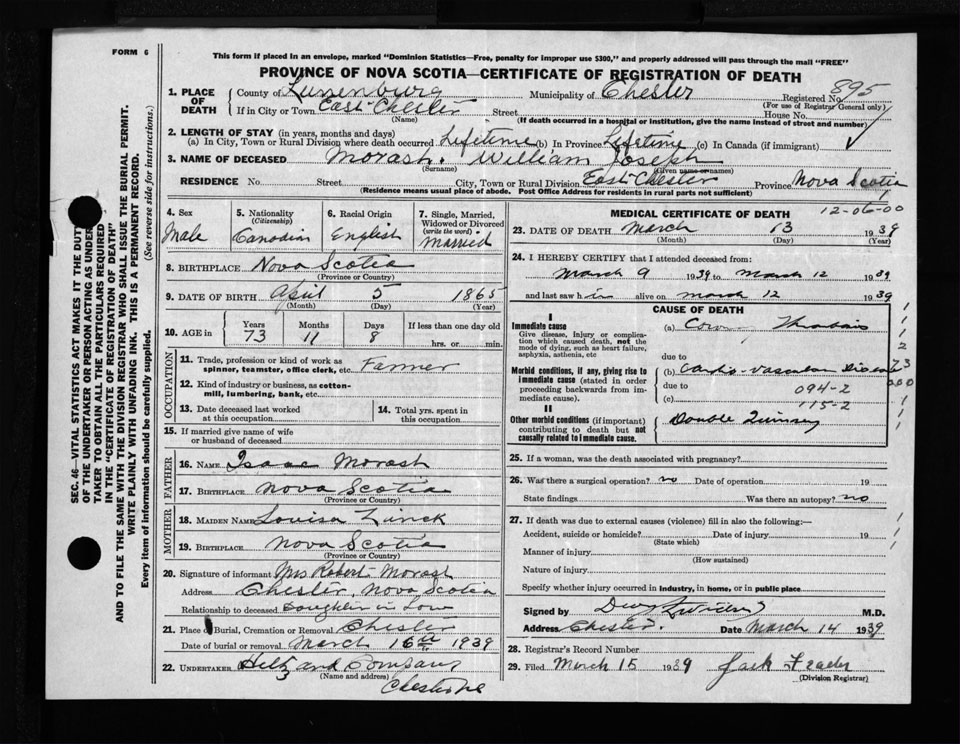 FORM 6
This form if placed in an envelope, marked "Dominion Statistics—Free, penalty for improper use $300," and properly addressed will pass through the mail "FREE"
PROVINCE OF NOVA SCOTIA—CERTIFICATE OF REGISTRATION OF DEATH
1. PLACE OF DEATH
County of Lunenburg Municipality of Chester Registered No. 895
(For use of Registrar General only)
If in City or Town East Chester Street House No.
(Name) (If death occurred in a hospital or institution, give the name instead of street and number)
2. LENGTH OF STAY (in years, months and days)
(a) In City, Town or Rural Division where death occurred Lifetime (b) In Province Lifetime (c) In Canada (if immigrant)
3. NAME OF DECEASED Morash. William Joseph
(Surname) (Given name or names)
RESIDENCE No. Street City, Town or Rural Division East Chester Province Nova Scotia
(Residence means usual place of abode. Post Office Address for residents in rural parts not sufficient)
SEC. 46—VITAL STATISTICS ACT MAKES IT THE DUTY
OF THE UNDERTAKER OR PERSON ACTING AS UNDER-
TAKER TO OBTAIN ALL THE PARTICULARS REQUIRED
IN THE "CERTIFICATE OF REGISTRATION OF DEATH"
AND TO FILE THE SAME WITH THE DIVISION REGISTRAR WHO SHALL ISSUE THE BURIAL PERMIT.
WRITE PLAINLY WITH UNFADING INK. THIS IS A PERMANENT RECORD.
Every item of information should be carefully supplied. (See reverse side for instructions.)
4. Sex
Male
5. Nationality
(Citizenship)
Canadian
6. Racial Origin
English
7. Single, Married, Widowed or Divorced
(write the word)
Married
8. BIRTHPLACE Nova Scotia
(Province or Country)
9. DATE OF BIRTH April 5 1865
(Month) (Day) (Year)
10. AGE in Years Months Days If less than one day old
73 11 8 hrs. or min.
OCCUPATION
11. Trade, profession or kind of work as spinner, teamster, office clerk, etc. Farmer
12. Kind of industry or business, as cotton-mill, lumbering, bank, etc.
13. Date deceased last worked at this occupation
14. Total yrs. spent in this occupation
15. If married give name of wife or husband of deceased
FATHER
16. NAME Isaac Morash
17. BIRTHPLACE Nova Scotia
(Province or Country)
MOTHER
18. MAIDEN NAME Louisa Zinck
19. BIRTHPLACE Nova Scotia
(Province or Country)
20. Signature of informant Mrs Robert Morash
Address Chester, Nova Scotia
Relationship to deceased Daughter in Law
21. Place of Burial, Cremation or Removal Chester
Date of burial or removal March 16th 1939
22. UNDERTAKER and Company
(Name and address)
Chester NS
MEDICAL CERTIFICATE OF DEATH 12-06-00
23. DATE OF DEATH March 13 1939
(Month) (Day) (Year)
24. I HEREBY CERTIFY that I attended deceased from:
March 9 1939 to March 12 1939
and last saw him alive on March 12 1939
CAUSE OF DEATH
I
Immediate cause
Give disease, injury or complication which caused death, not the mode of dying, such as heart failure, asphyxia, asthenia, etc
(a) Thrombosis
due to
Morbid conditions, if any, giving rise to immediate cause (stated in order proceeding backwards from immediate cause).
(b) Cardio-Vascular Disease
due to 094-2
(c) 115-2
II
Other morbid conditions (if important) contributing to death but not causally related to immediate cause.
Double Quinsey
25. If a woman, was the death associated with pregnancy?
26. Was there a surgical operation? no Date of operation 19
State findings Was there an autopsy? no
27. If death was due to external causes (violence) fill in also the following:—
Accident, suicide or homicide? Date of injury 19
(State which)
Manner of injury
(How sustained)
Nature of injury
Specify whether injury occurred in industry, in home, or in public place
Signed by M.D.
Address Chester. Date March 14 1939
28. Registrar's Record Number
29. Filed March 15 1939 Jack
(Division Registrar)